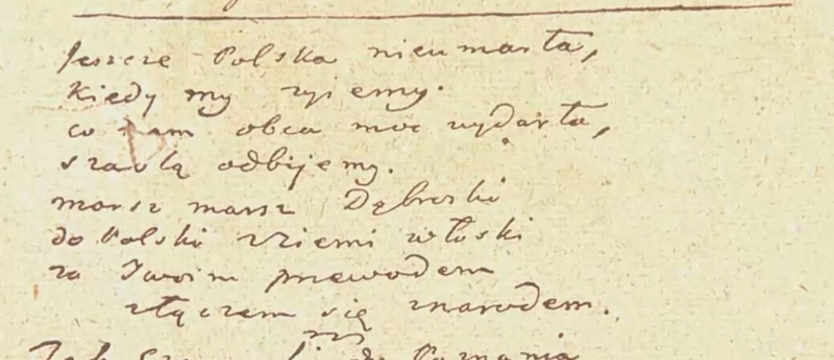 Jeszcze Polska nieumarła,
kiedy my żyiemy.
co nam obca moc wydarła,
szablą odbijemy.
marsz marsz Dąbroski
do Polski zziemi włoski
za Twoim przewodem
złączem się znarodem.
do Poznania